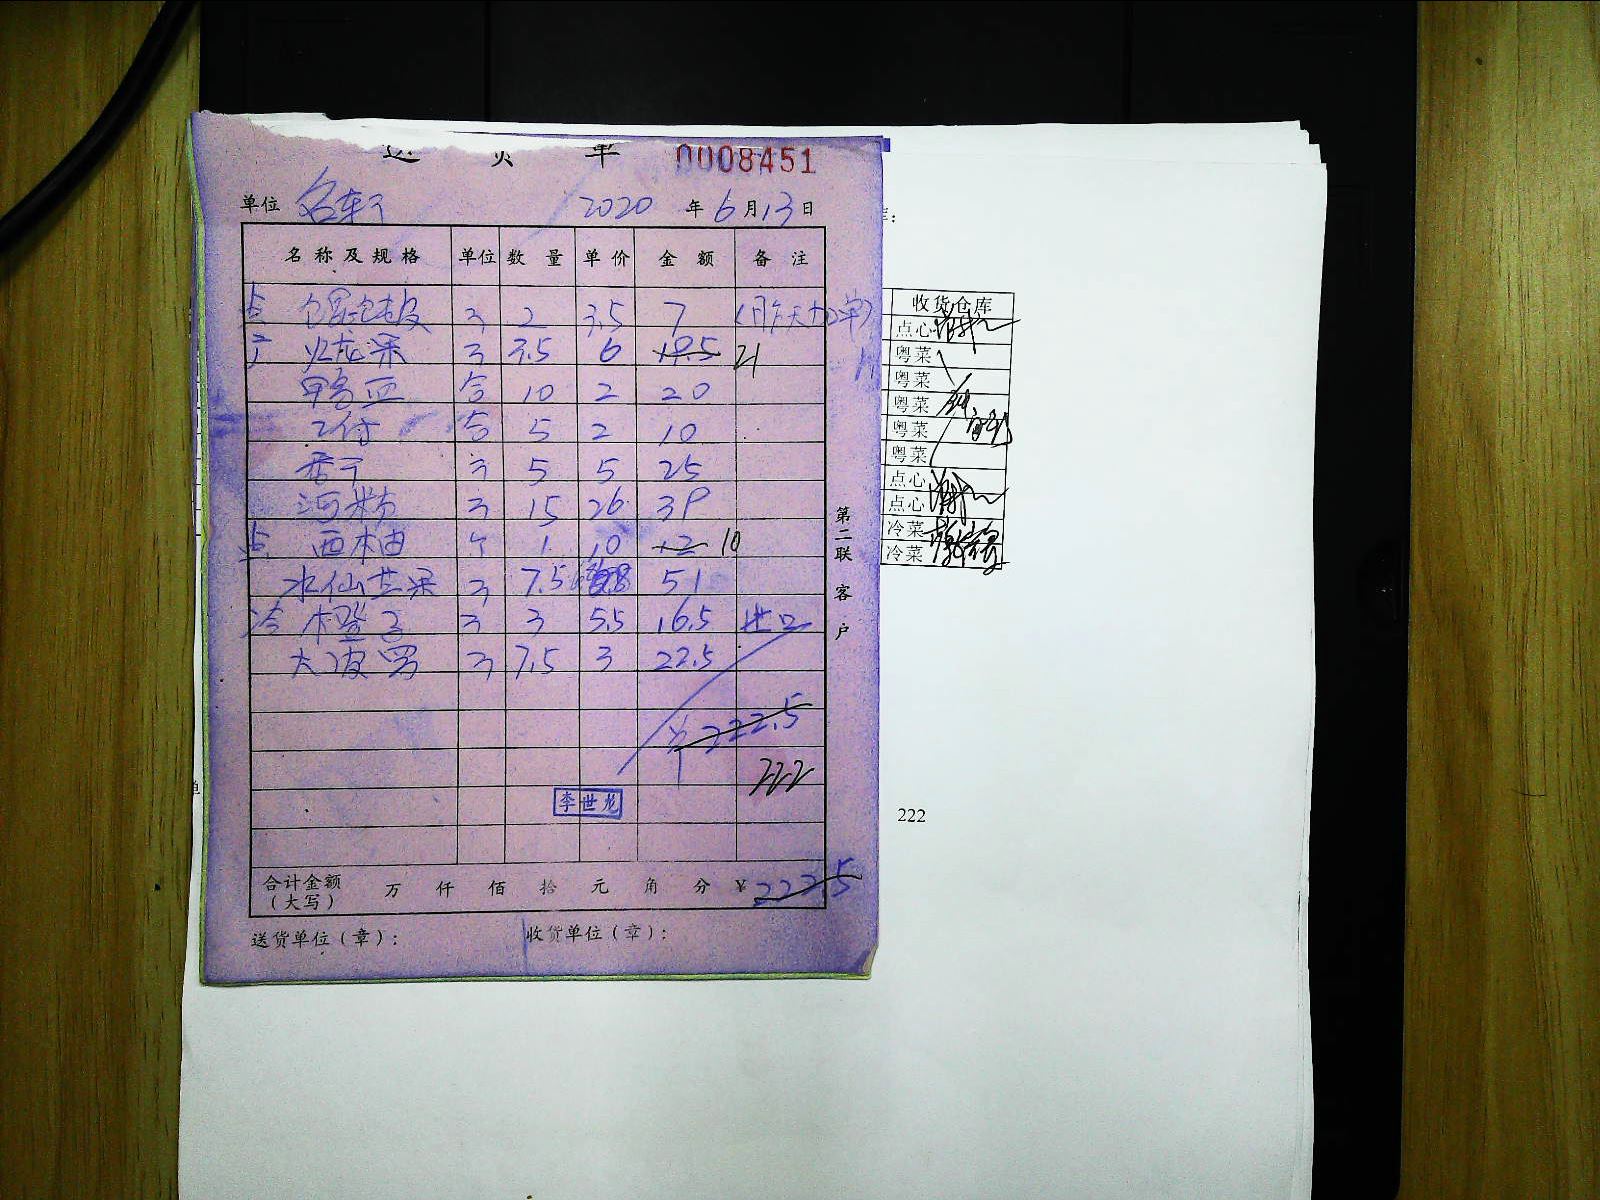 送货单 0008451
单位 名轩 2020 年 6 月 13 日
名称及规格 单位 数量 单价 金额 备注
点 馄饨皮 斤 2 3.5 7
火龙果 斤 3.5 6 19.5 21
鸭血 合 10 2 20
合 5 2 10
香干 斤 5 5 25
河粉 斤 15 26 39
点 西柚 个 1 10 12 10
水仙芒果 斤 7.5 6.8 51
冷 橙子 斤 3 5.5 16.5 进口
大菠罗 斤 7.5 3 22.5
222.5
222
李世龙
合计金额(大写) 万 仟 佰 拾 元 角 分 ¥ 222.5
送货单位(章): 收货单位(章):
第二联 客户
收货仓库
点心
粤菜
粤菜
粤菜
粤菜
粤菜
点心
点心
冷菜
冷菜
222